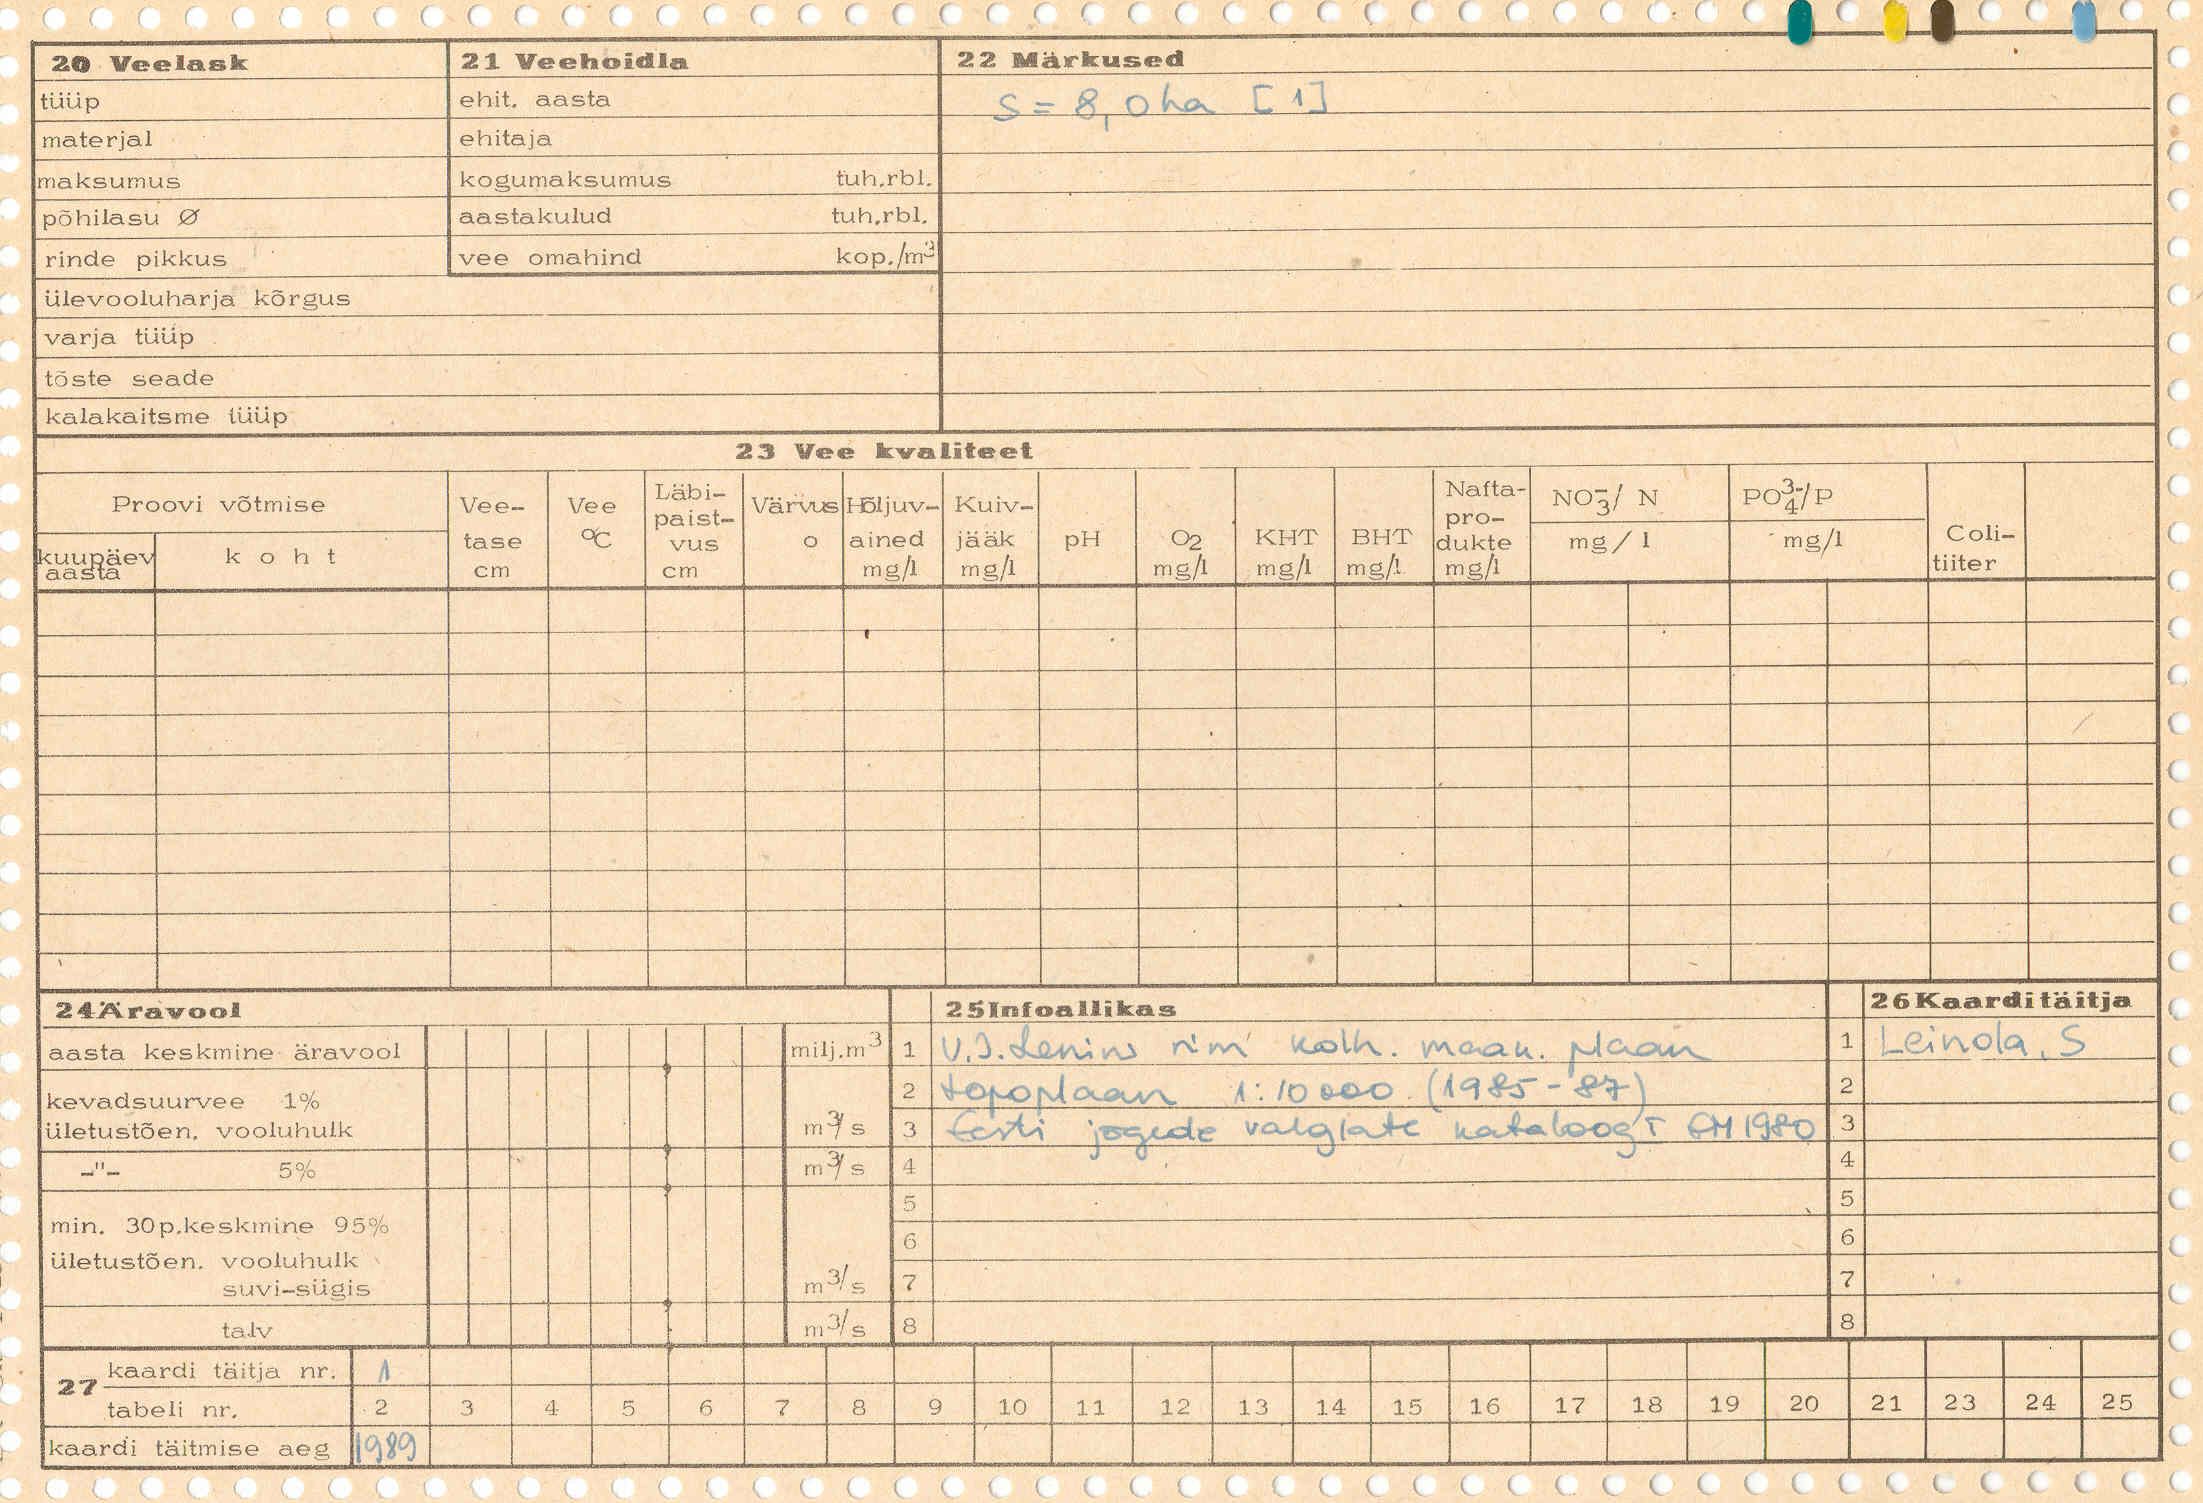 20 Veelask
tüüp
materjal
maksumus
põhilasu Ø
rinde pikkus
ülevooluharja kõrgus
varja tüüp
tõste seade
kalakaitsme tüüp
21 Veehoidla
ehit. aasta
ehitaja
kogumaksumus tuh.rbl.
aastakulud tuh.rbl.
vee omahind kop./m³
22 Märkused
S = 8,0 ha [1]
23 Vee kvaliteet
Proovi võtmise
kuupäev aasta
koht
Vee-
tase
cm
Vee
°C
Läbi-
paist-
vus
cm
Värvus
o
Hõljuv-
ained
mg/l
Kuiv-
jääk
mg/l
pH
O₂
mg/l
KHT
mg/l
BHT
mg/l
Nafta-
pro-
dukte
mg/l
NO₃⁻/ N
mg/l
PO₄³⁻/P
mg/l
Coli-
tiiter
24 Äravool
aasta keskmine äravool milj.m³
kevadsuurvee 1%
ületustõen. vooluhulk m³/s
-"- 5% m³/s
min. 30p.keskmine 95%
ületustõen. vooluhulk
suvi-sügis m³/s
talv m³/s
25 Infoallikas
1 V.I. Lenini nim kolh. maak. plaan
2 topoplaan 1:10 000 (1985-87)
3 Eesti jõgede valglate kataloog I EM 1980
4
5
6
7
8
26 Kaarditäitja
1 Leinola, S
2
3
4
5
6
7
8
27
kaardi täitja nr. 1
tabeli nr. 2 3 4 5 6 7 8 9 10 11 12 13 14 15 16 17 18 19 20 21 23 24 25
kaardi täitmise aeg 1989